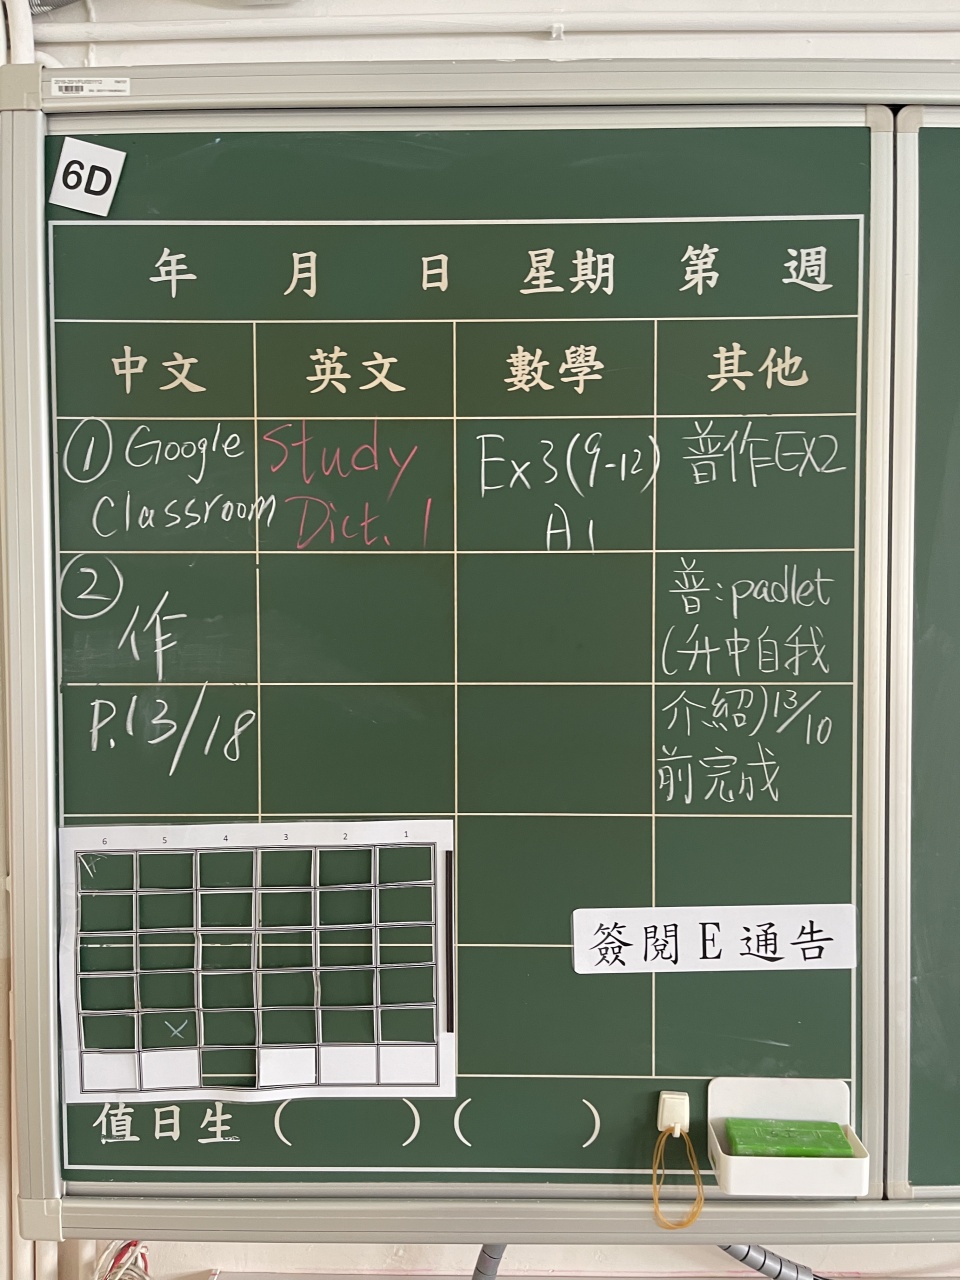 6D
年 月 日 星期 第 週
中文 英文 數學 其他
① Google
Classroom
Study
Dict. 1
Ex3(9-12)
A1
普作EX2
②
作
P.13/18
普:padlet
(升中自我
介紹)13/10
前完成
6 5 4 3 2 1
簽閱E通告
值日生 ( ) ( )